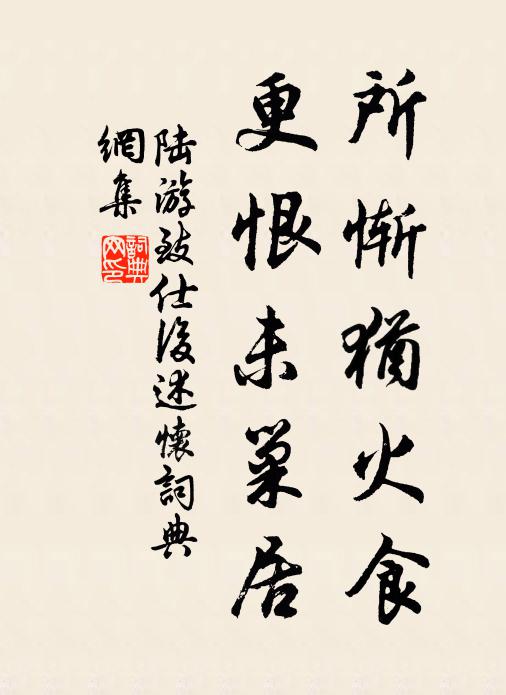 所慚猶火食
更恨未巢居
陆游致仕後述懷詞典
網集
詞典网印